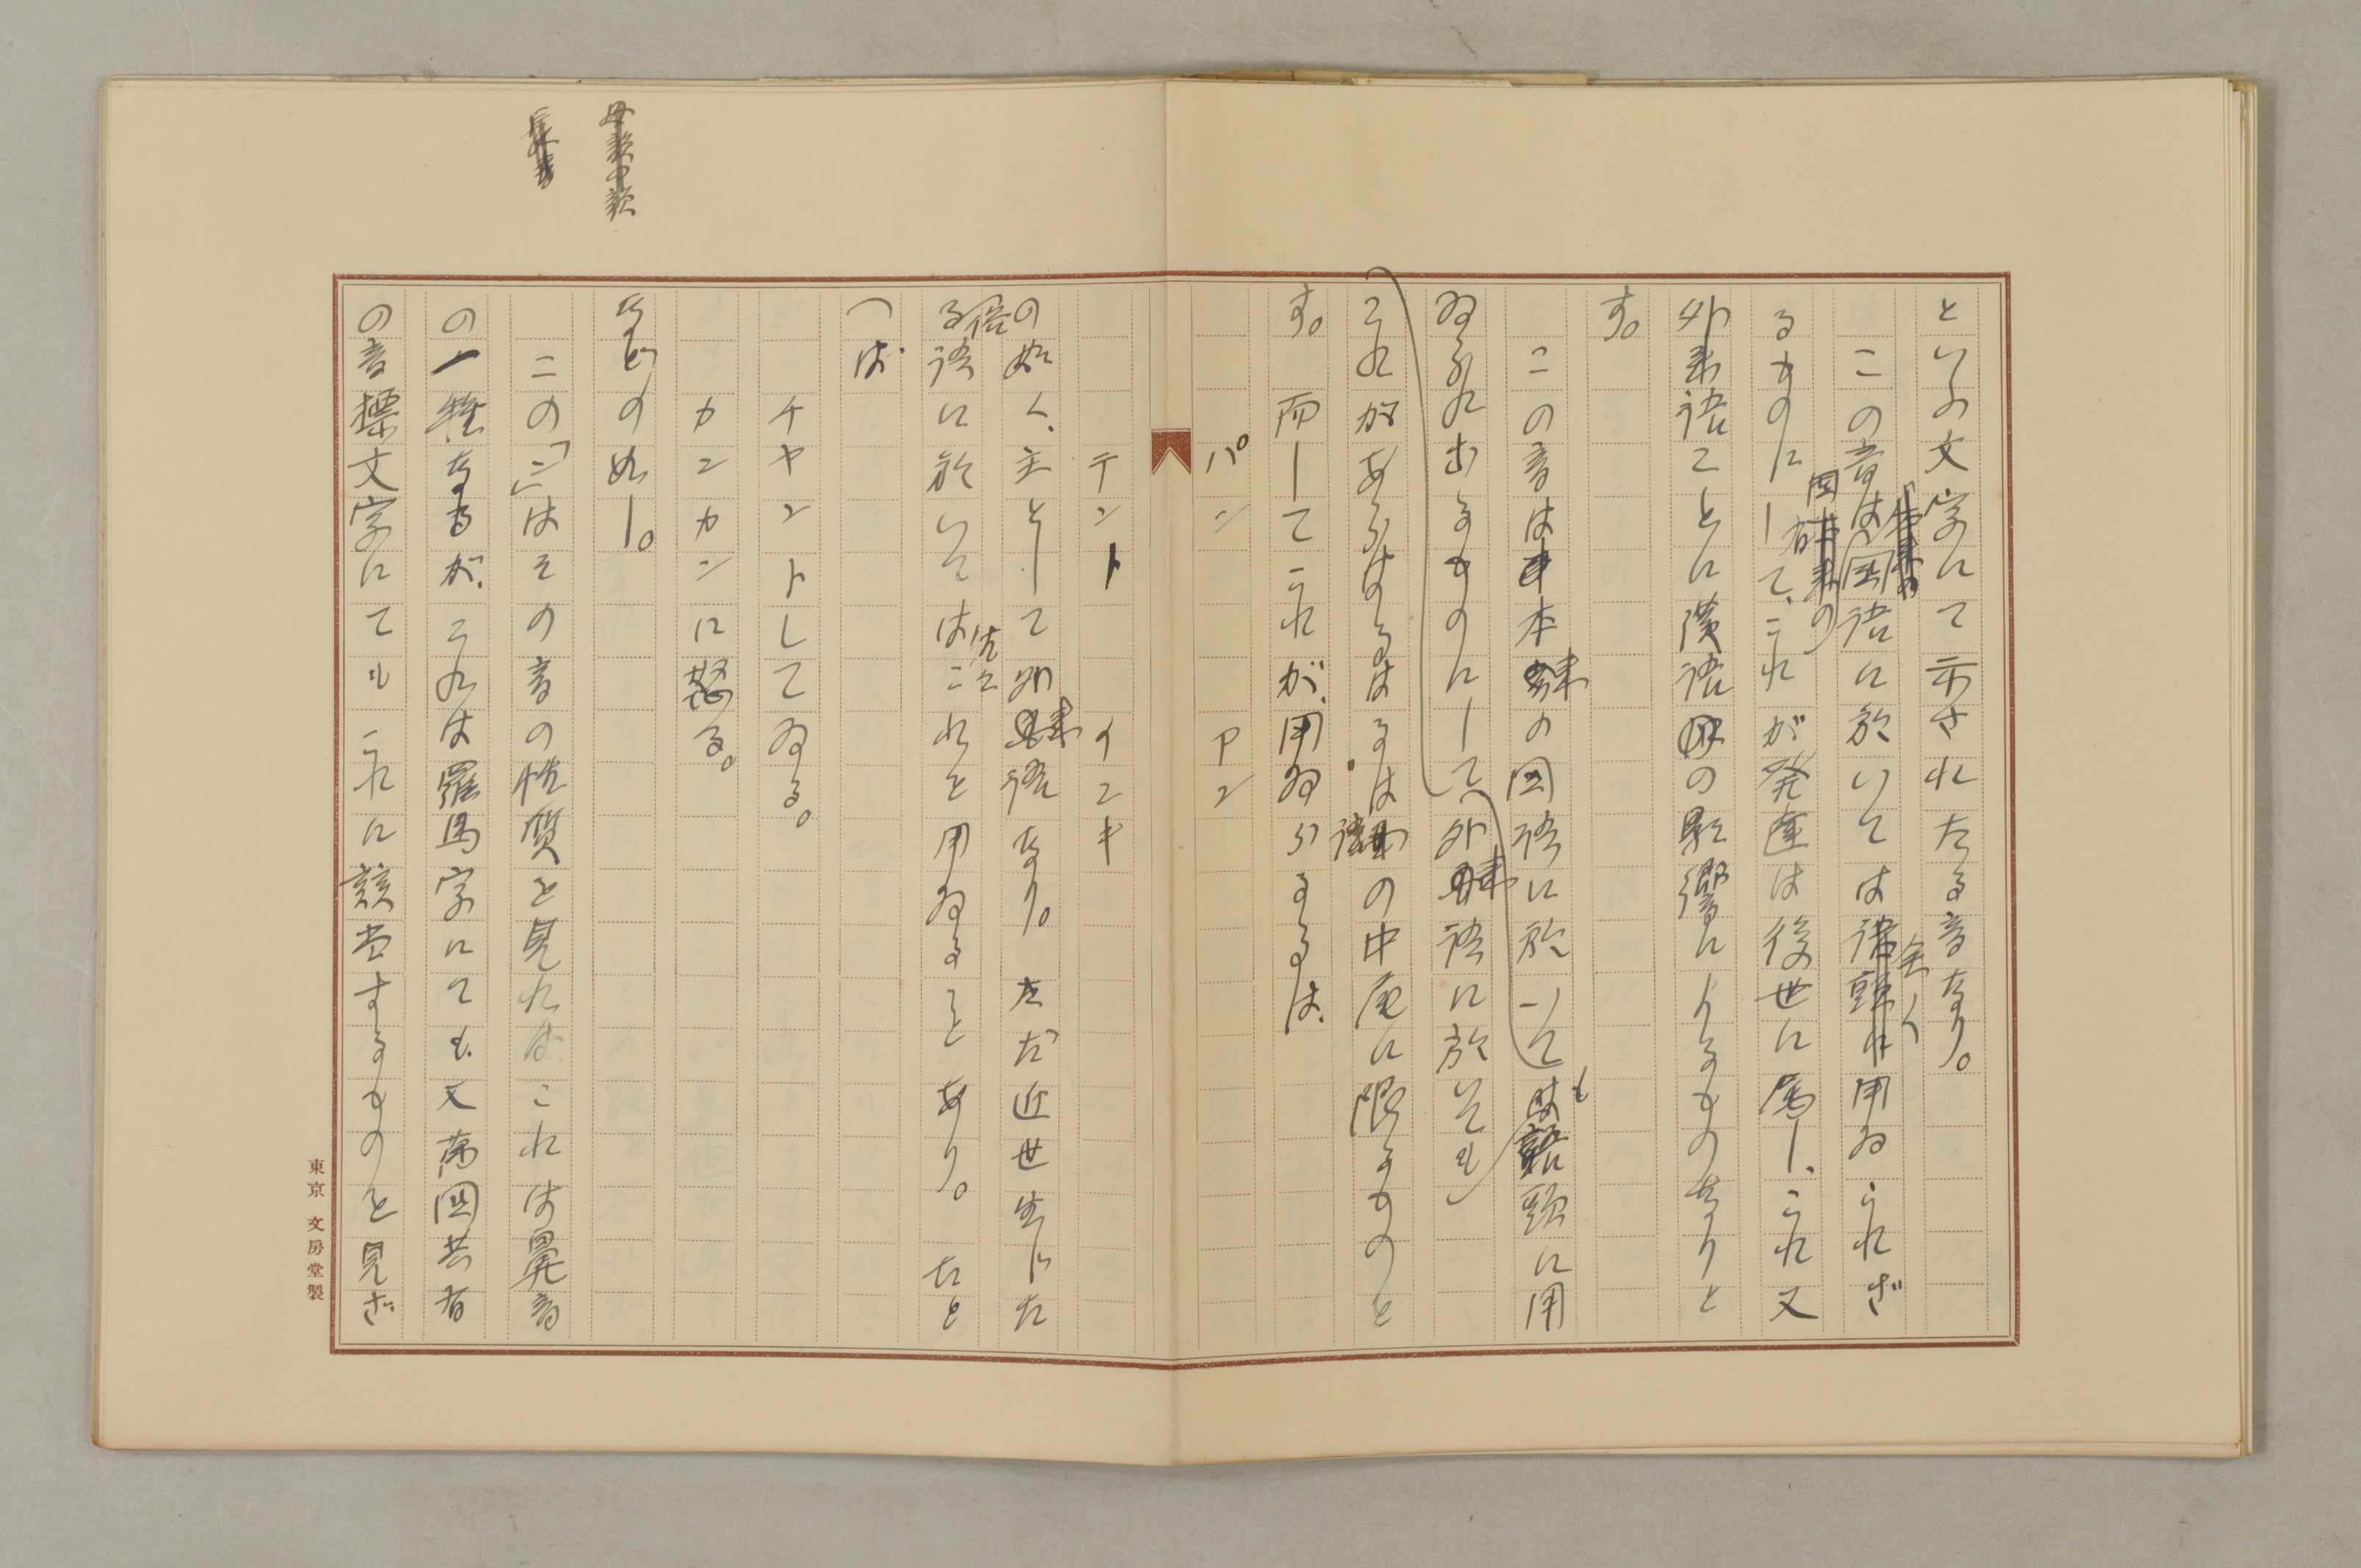 といふ文字にて示されたる音なり。
この音は国語に於いては全く用ゐられざ
るものにして、これが発達は後世に属し、これ又
外来語ことに漢語の影響によるものなりと
す。
この音は本来の国語に於いても語頭に用
ゐられざるものにして、外来語に於いても
これがあらはるるは語の中尾に限るものと
す。而してこれが、用ゐらるるは、
パン　アン
テント　インキ
の如く、主として外来語なり。ただ近世生じた
る俗語に於いては往々これを用ゐることあり。たと
へば
チヤントしてゐる。
カンカンに怒る。
などの如し。
この「ン」はその音の性質を見ればこれは鼻音
の一種なるが、これは羅馬字にても、又万国共有
の音標文字にてもこれに該当するものを見ざ
東京 文房堂製